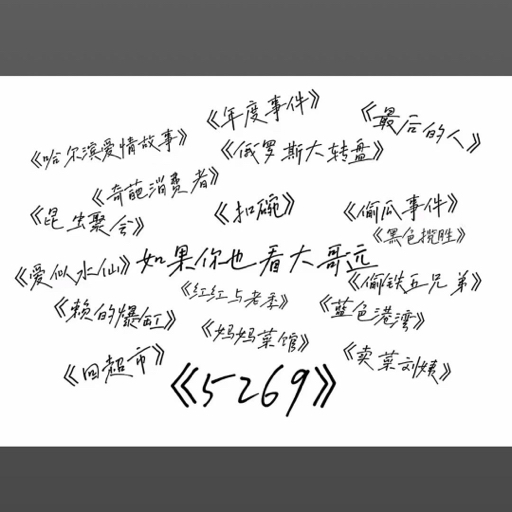 《年度事件》
《最后的人》
《哈尔滨爱情故事》
《俄罗斯大转盘》
《奇葩消费者》
《昆虫聚会》
《扣碗》
《偷瓜事件》
《黑色揽胜》
《爱似水仙》
如果你也看大哥远
《偷铁五兄弟》
《红红与老季》
《赖的爆缸》
《蓝色港湾》
《妈妈菜馆》
《四超市》
《卖菜刘姨》
《5269》